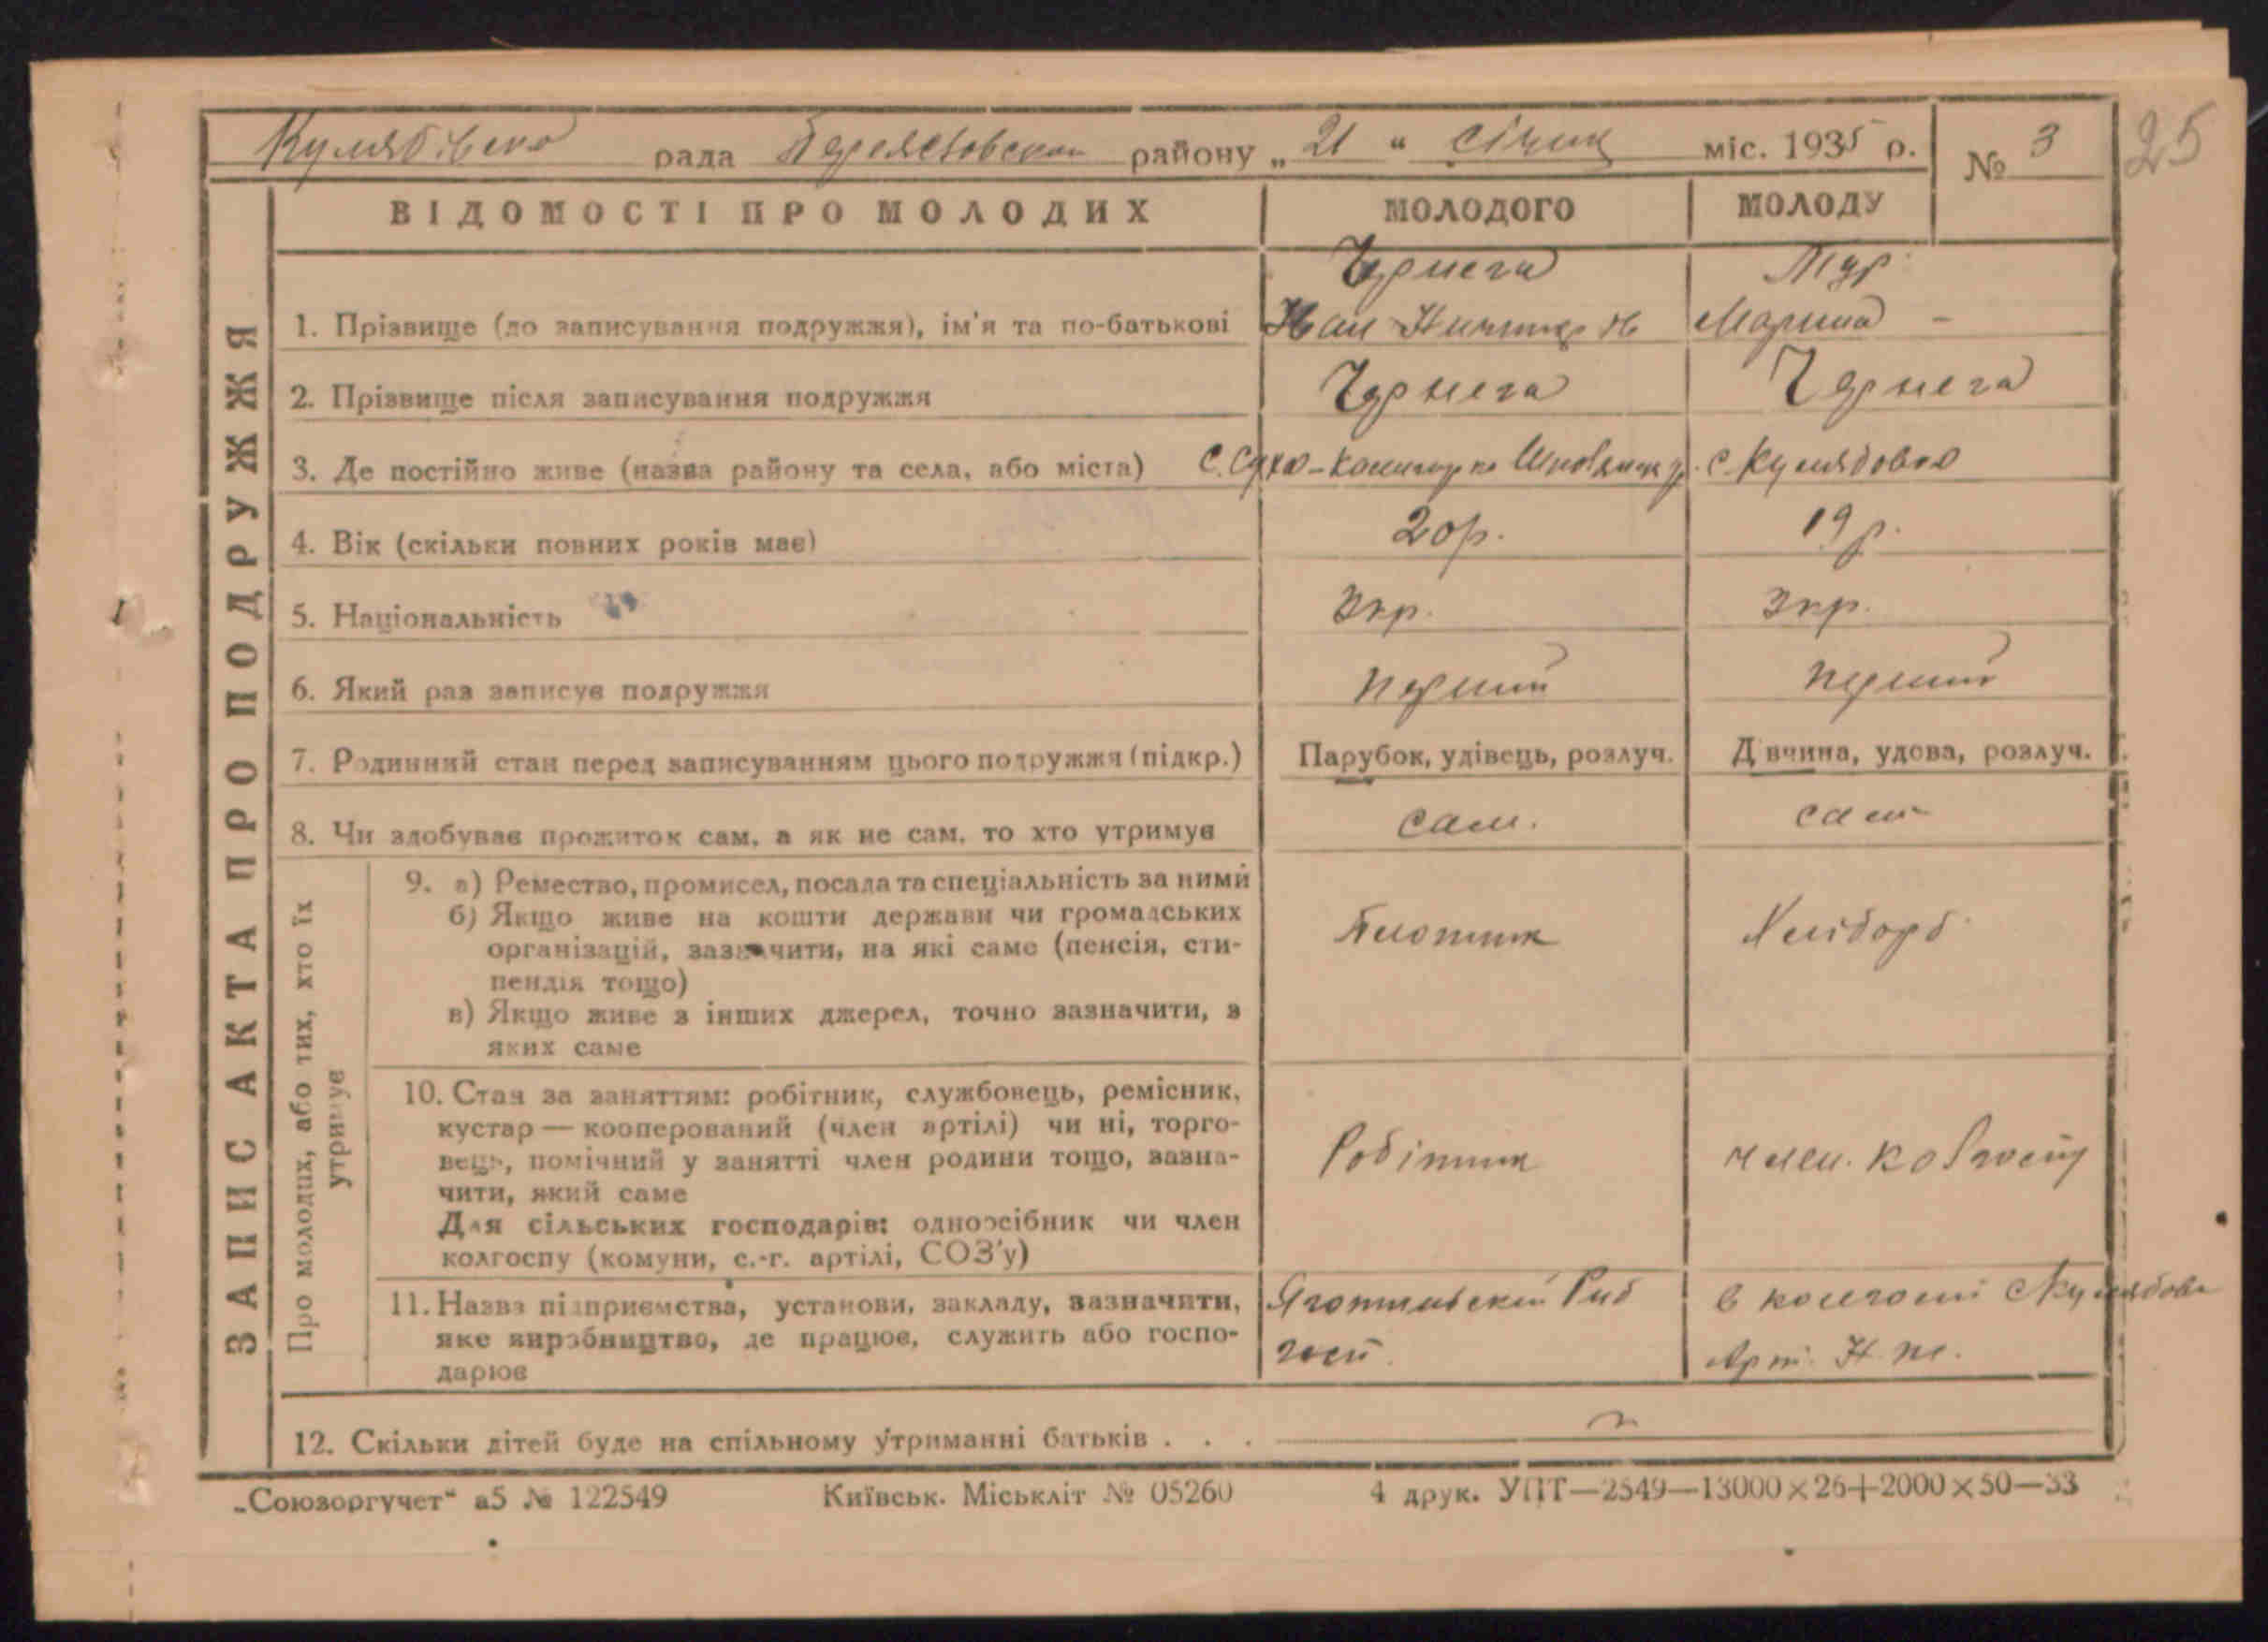 Кулябівсько рада району „ 21 “ січня міс. 1935 р. № 3
25
ВІДОМОСТІ ПРО МОЛОДИХ МОЛОДОГО МОЛОДУ
ЗАПИС АКТА ПРО ПОДРУЖЖЯ
Чернега
1. Прізвище (до записування подружжя), ім'я та по-батькові Іван Марина -
2. Прізвище після записування подружжя Чернега Чернега
3. Де постійно живе (назва району та села, або міста) с.
4. Вік (скільки повних років має) 20 р. 19 р.
5. Національність Укр. Укр.
6. Який раз записує подружжя перший перший
7. Родинний стан перед записуванням цього подружжя (підкр.) Парубок, удівець, розлуч. Д вчина, удова, розлуч.
8. Чи здобуває прожиток сам, а як не сам, то хто утримує сам. сам
Про молодих, або тих, хто їх
утримує
9. а) Ремество, промисел, посада та спеціальність за ними
б) Якщо живе на кошти держави чи громадських
організацій, зазначити, на які саме (пенсія, сти-
пендія тощо)
в) Якщо живе з інших джерел, точно зазначити, з
яких саме
Плотник Хлібороб
10. Стан за заняттям: робітник, службовець, ремісник,
кустар — кооперований (член артілі) чи ні, торго-
вець, помічний у занятті член родини тощо, зазна-
чити, який саме
Для сільських господарів: одноосібник чи член
колгоспу (комуни, с.-г. артілі, СОЗ'у)
Робітник член. колгоспу
11. Назва підприємства, установи, закладу, зазначити,
яке виробництво, де працює, служить або госпо-
дарює
12. Скільки дітей буде на спільному утриманні батьків . . .
„Союзоргучет“ а5 № 122549 Київськ. Міськліт № 05260 4 друк. УПТ—2549—13000×26+2000×50—33